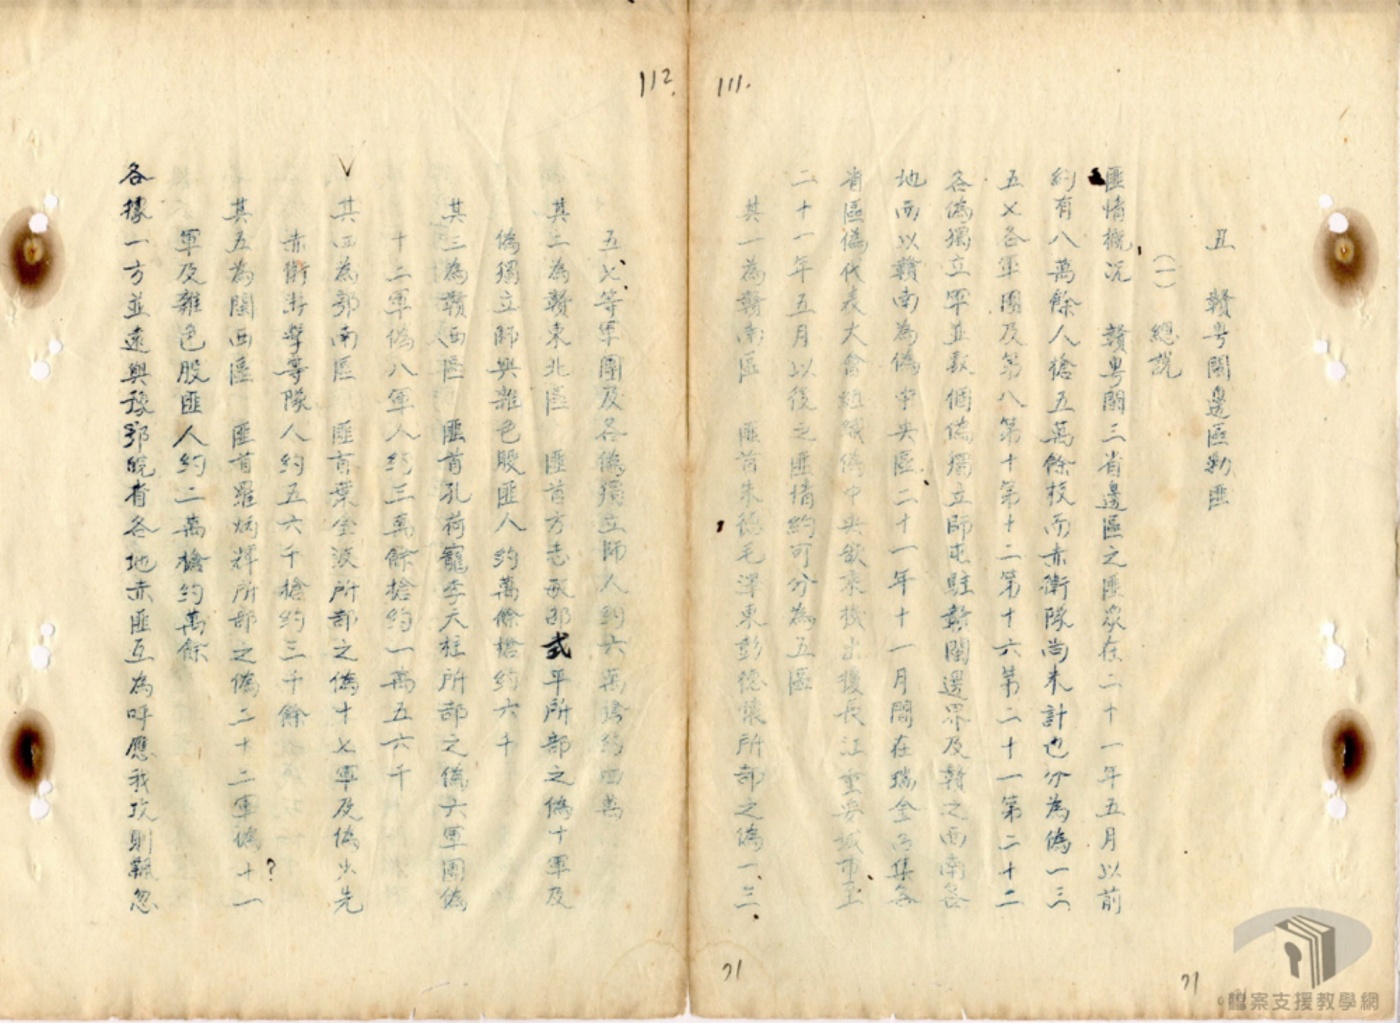 111.
丑　贛粵閩邊區勦匪
（一）總說
匪情概況　贛粵閩三省邊區之匪眾在二十一年五月以前
約有八萬餘人槍五萬餘枝而赤衛隊尚未計也分為偽一三
五七各軍團及第八第十第十二第十六第二十一第二十二
各偽獨立軍並數個偽獨立師屯駐贛閩邊界及贛之西南各
地而以贛南為偽中央區二十一年十一月間在瑞金召集各
省區偽代表大會組織偽中央欲乘機出擾長江重要城市至
二十一年五月以後之匪情約可分為五區
其一為贛南區　匪首朱德毛澤東彭德懷所部之偽一、三、
21
21
檔案支援教學網
112.
五七等軍團及各偽獨立師人約六萬槍約四萬
其二為贛東北區　匪首方志敏邵式平所部之偽十軍及
偽獨立師與雜色股匪人約萬餘槍約六千
其三為贛西區　匪首孔荷寵李天柱所部之偽六軍團偽
十二軍偽八軍人約三萬餘槍約一萬五六千
其四為鄂南區　匪首葉金波所部之偽十七軍及偽少先
赤衛等隊人約五六千槍約三千餘
其五為閩西區　匪首羅炳輝所部之偽二十二軍偽十一
?
軍及雜色股匪人約二萬槍約萬餘
各據一方並遠與豫鄂皖省各地赤匪互為呼應我攻則竄忽